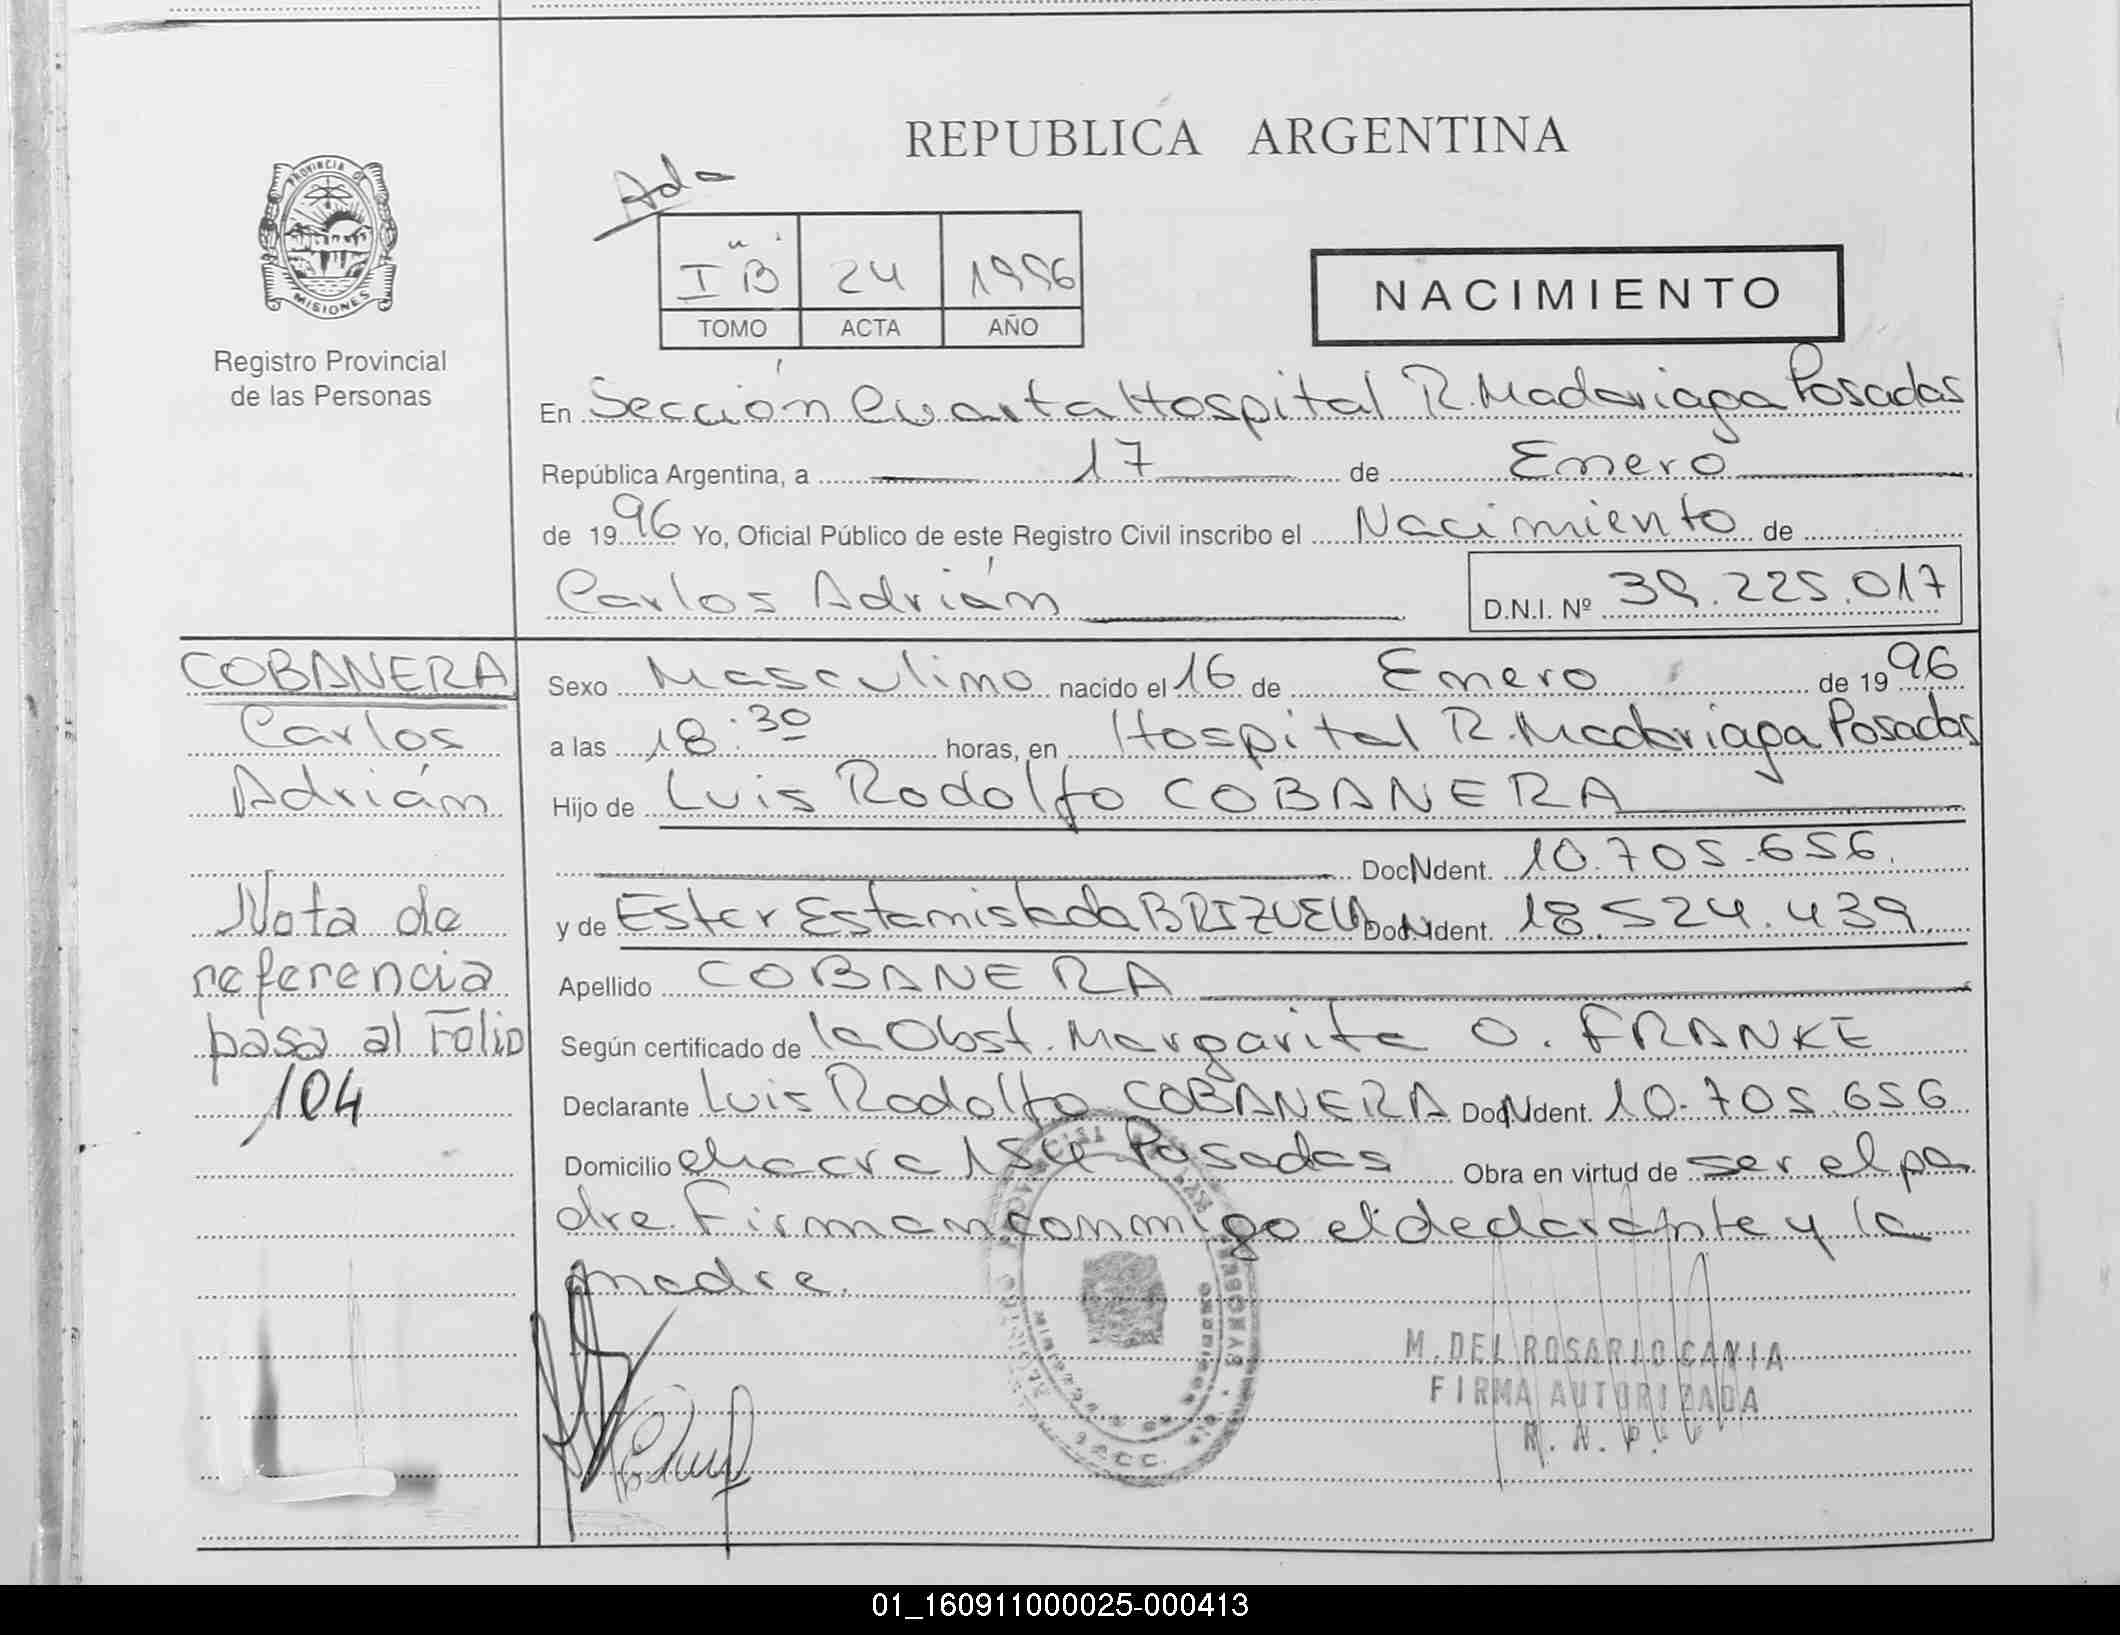 REPUBLICA ARGENTINA
PROVINCIA D
MISIONES
Registro Provincial
de las Personas
Ada
I "B" 24 1996
TOMO ACTA AÑO
NACIMIENTO
En Sección Cuarta Hospital R. Madariaga Posadas
República Argentina, a 17 de Enero
de 1996 Yo, Oficial Público de este Registro Civil inscribo el Nacimiento de
Carlos Adrián D.N.I. Nº 39.225.017
COBANERA
Carlos
Adrián
Nota de
referencia
pasa al Folio
104
Sexo Masculino nacido el 16 de Enero de 1996
a las 18:30 horas, en Hospital R. Madariaga Posadas
Hijo de Luis Rodolfo COBANERA
Doc. N Ident. 10.705.656.
y de Ester Estamislada BRIZUELA Doc N Ident. 18.524.439
Apellido COBANERA
Según certificado de la Obst. Margarita O. FRANKE
Declarante Luis Rodolfo COBANERA Doc N Ident. 10.705.656
Domicilio chacra 154 Posadas Obra en virtud de ser el pa
dre. Firman conmigo el declarante y la
madre.
M. DEL ROSARIO CANIA
FIRMA AUTORIZADA
R. N. P.
01_160911000025-000413